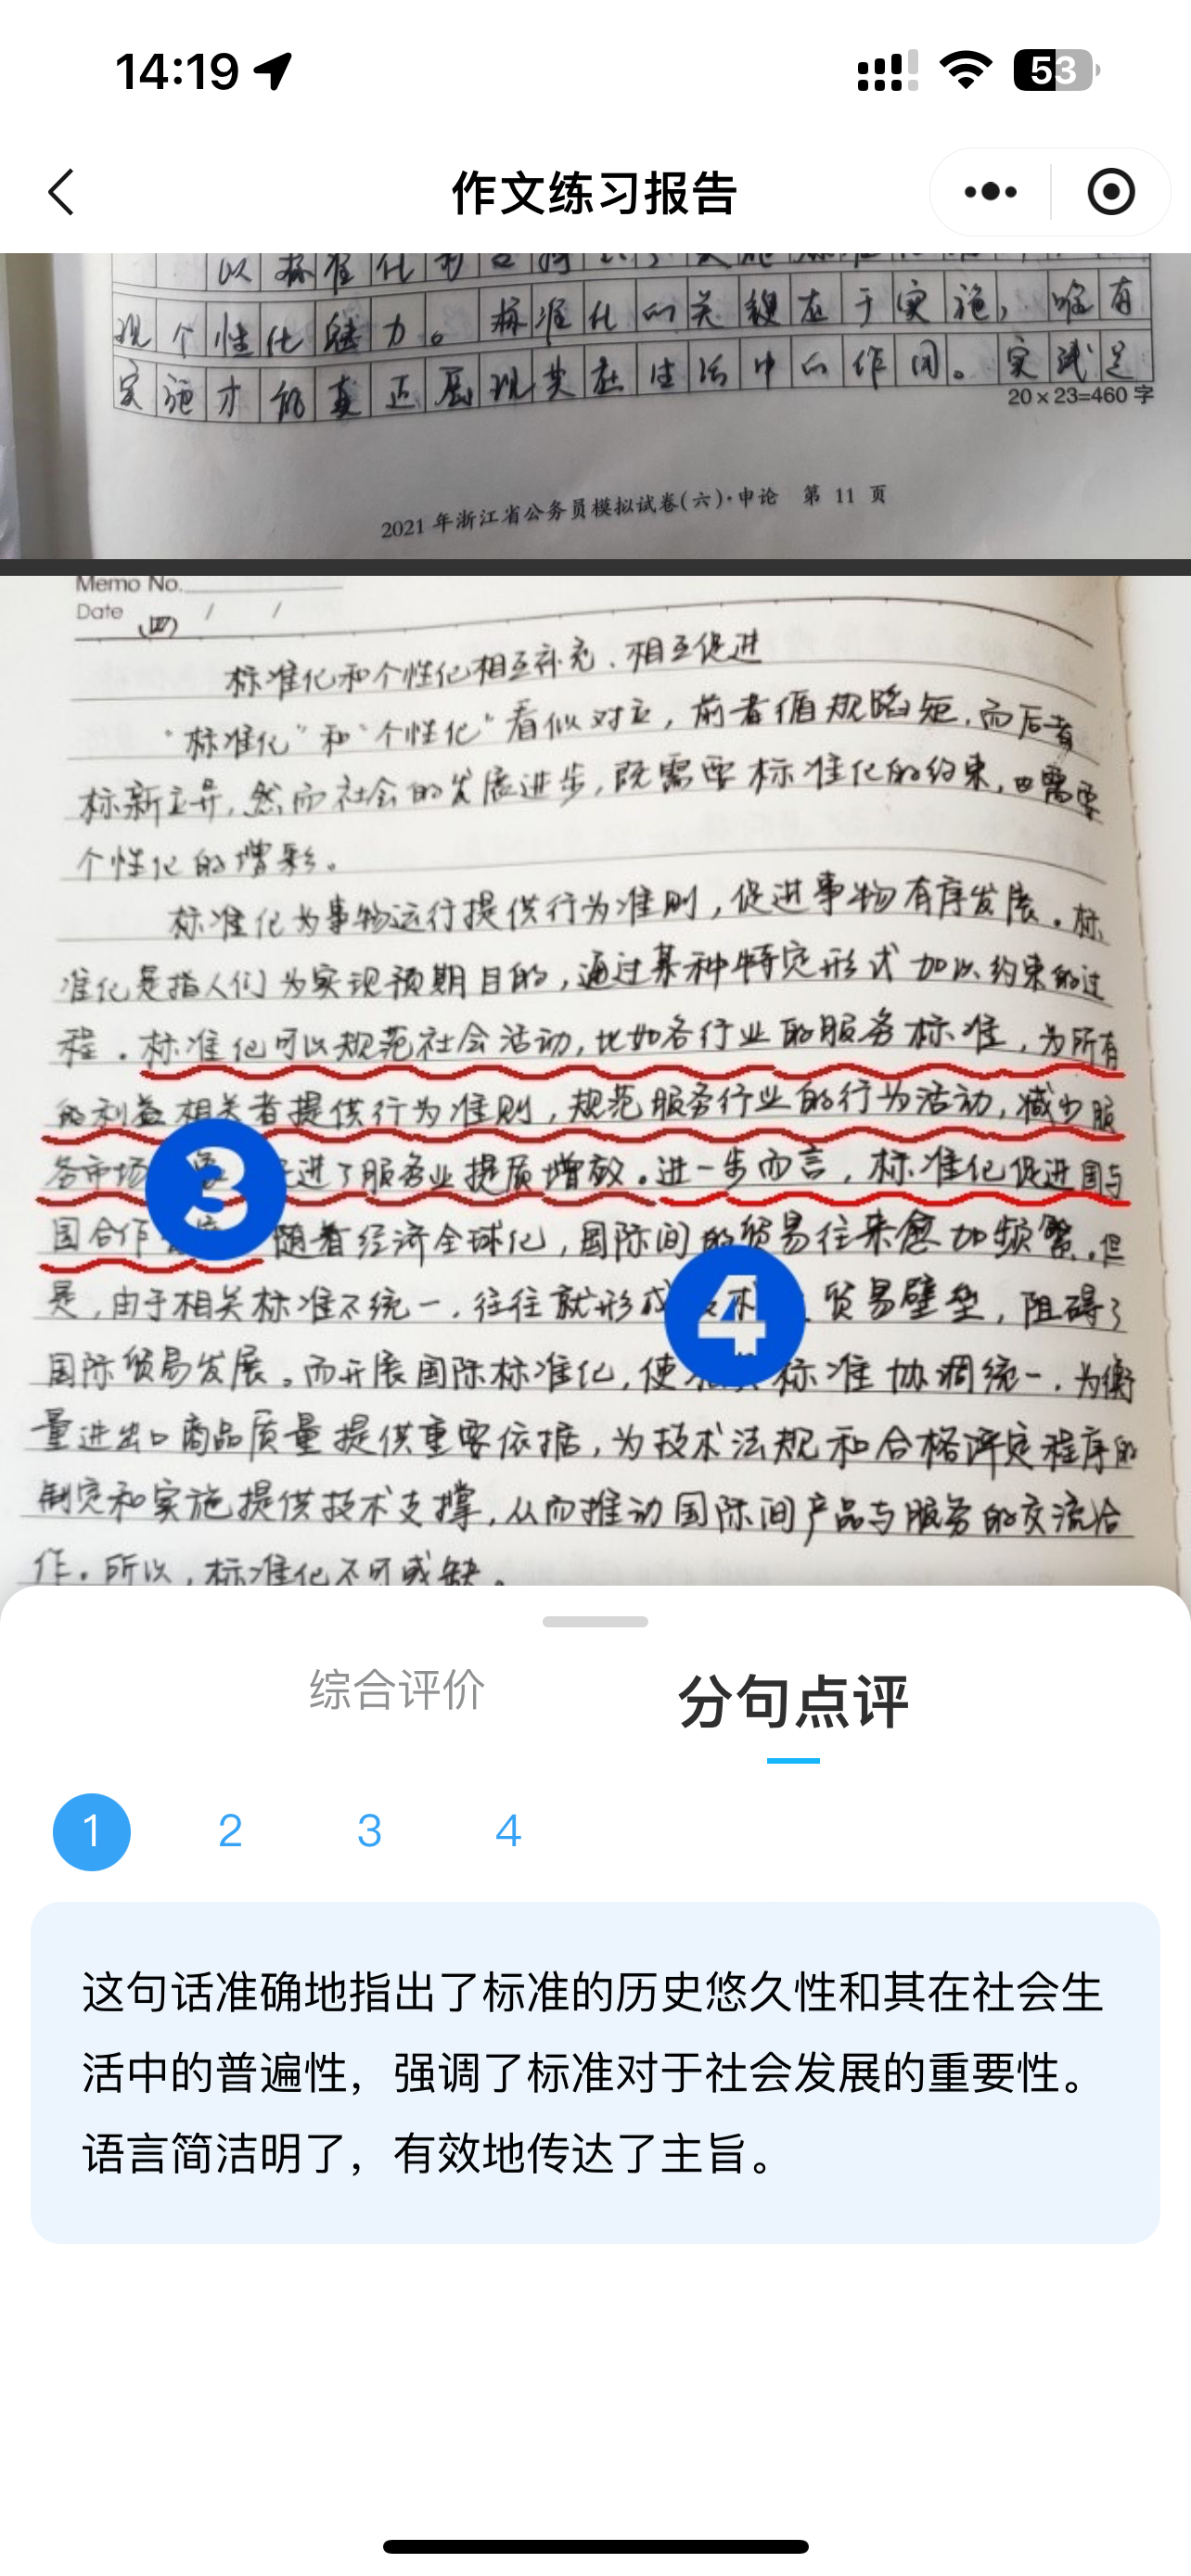 14:19
53
作文练习报告
以标准化
现个性化魅力。标准化的关键在于实施,唯有
实施才能真正展现其在生活中的作用。实践是
20×23=460 字
2021 年浙江省公务员模拟试卷(六)·申论 第 11 页
Memo No.
Date / /
(四)
标准化和个性化相互补充、相互促进
“标准化”和“个性化”看似对立,前者循规蹈矩,而后者
标新立异,然而社会的发展进步,既需要标准化的约束,也需要
个性化的增彩。
标准化为事物运行提供行为准则,促进事物有序发展。标
准化是指人们为实现预期目的,通过某种特定形式加以约束的过
程。标准化可以规范社会活动,比如各行业的服务标准,为所有
的利益相关者提供行为准则,规范服务行业的行为活动,减少服
务市场 3 进了服务业提质增效。进一步而言,标准化促进国与
国合作 随着经济全球化,国际间的贸易往来愈加频繁。但
是,由于相关标准不统一,往往就形成 4 贸易壁垒,阻碍了
国际贸易发展。而开展国际标准化,使 标准协调统一,为衡
量进出口商品质量提供重要依据,为技术法规和合格评定程序的
制定和实施提供技术支撑,从而推动国际间产品与服务的交流合
作。所以,标准化不可或缺。
综合评价 分句点评
1 2 3 4
这句话准确地指出了标准的历史悠久性和其在社会生
活中的普遍性,强调了标准对于社会发展的重要性。
语言简洁明了,有效地传达了主旨。